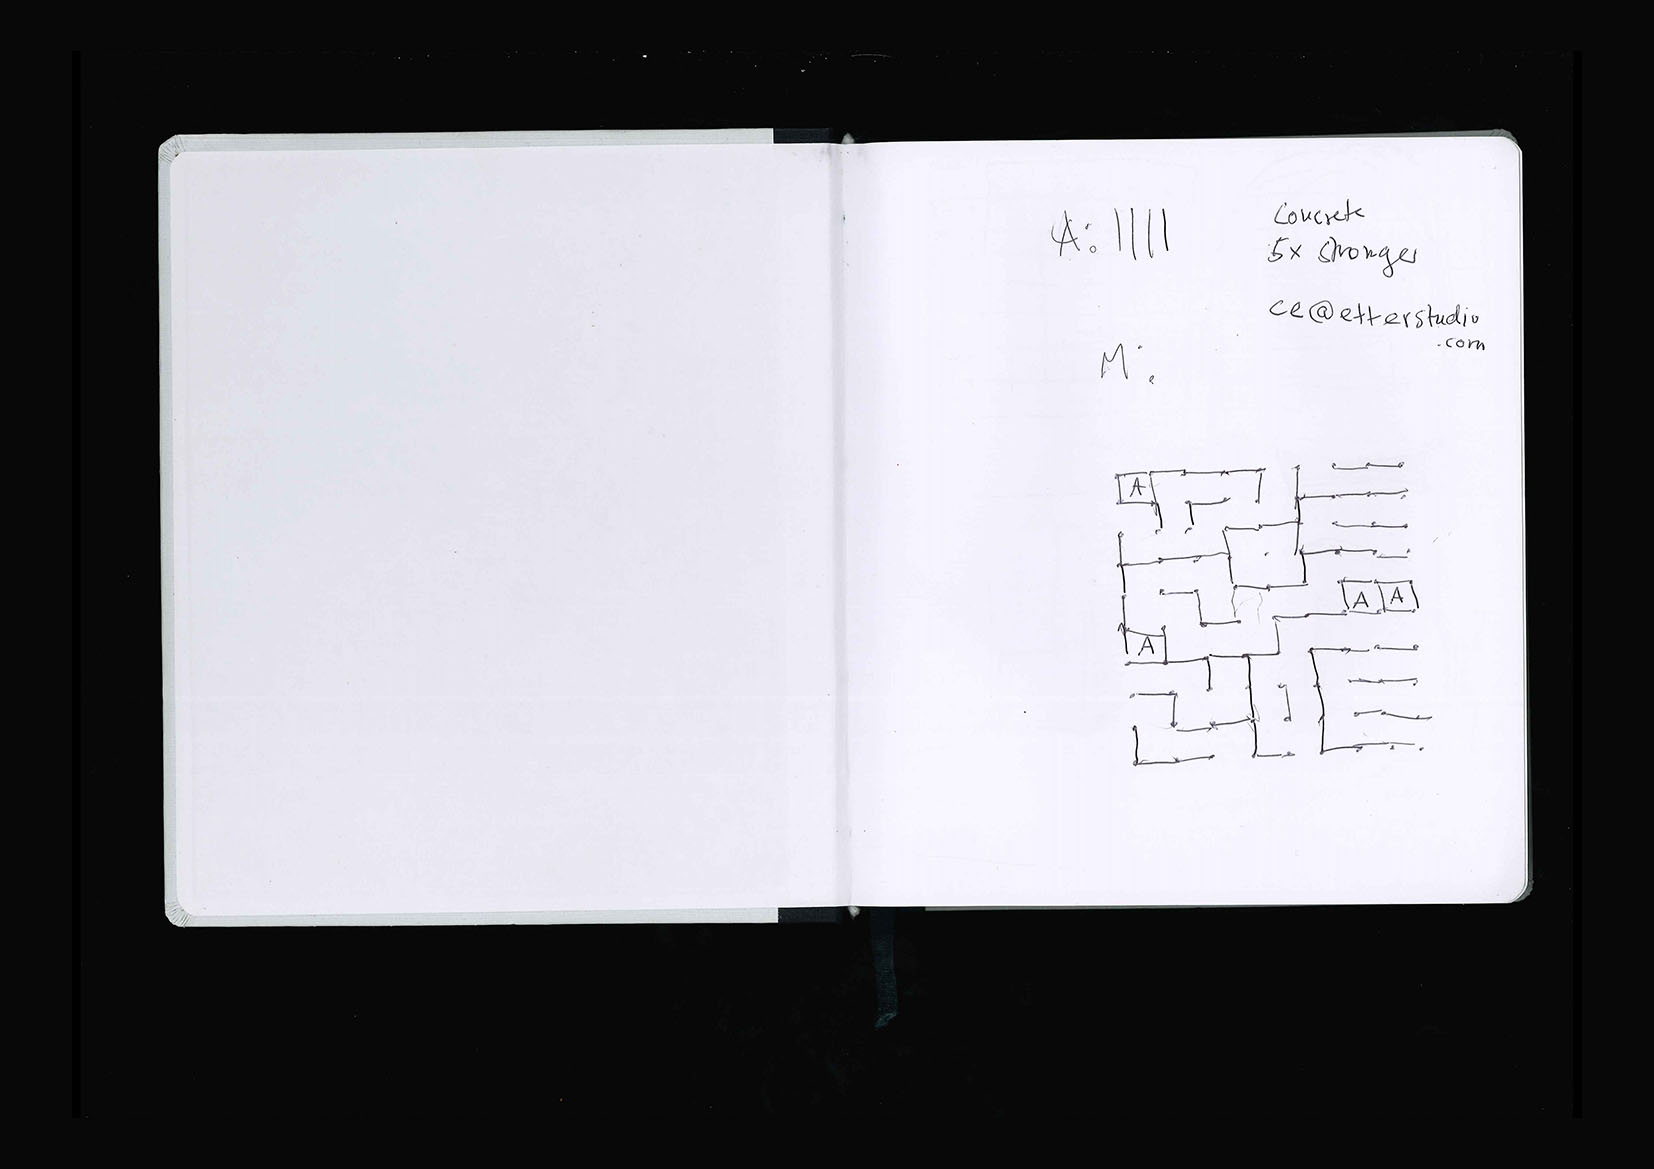 A: ||||
Concrete
5x stronger
ce@etterstudio
.com
M:
A
A A
A